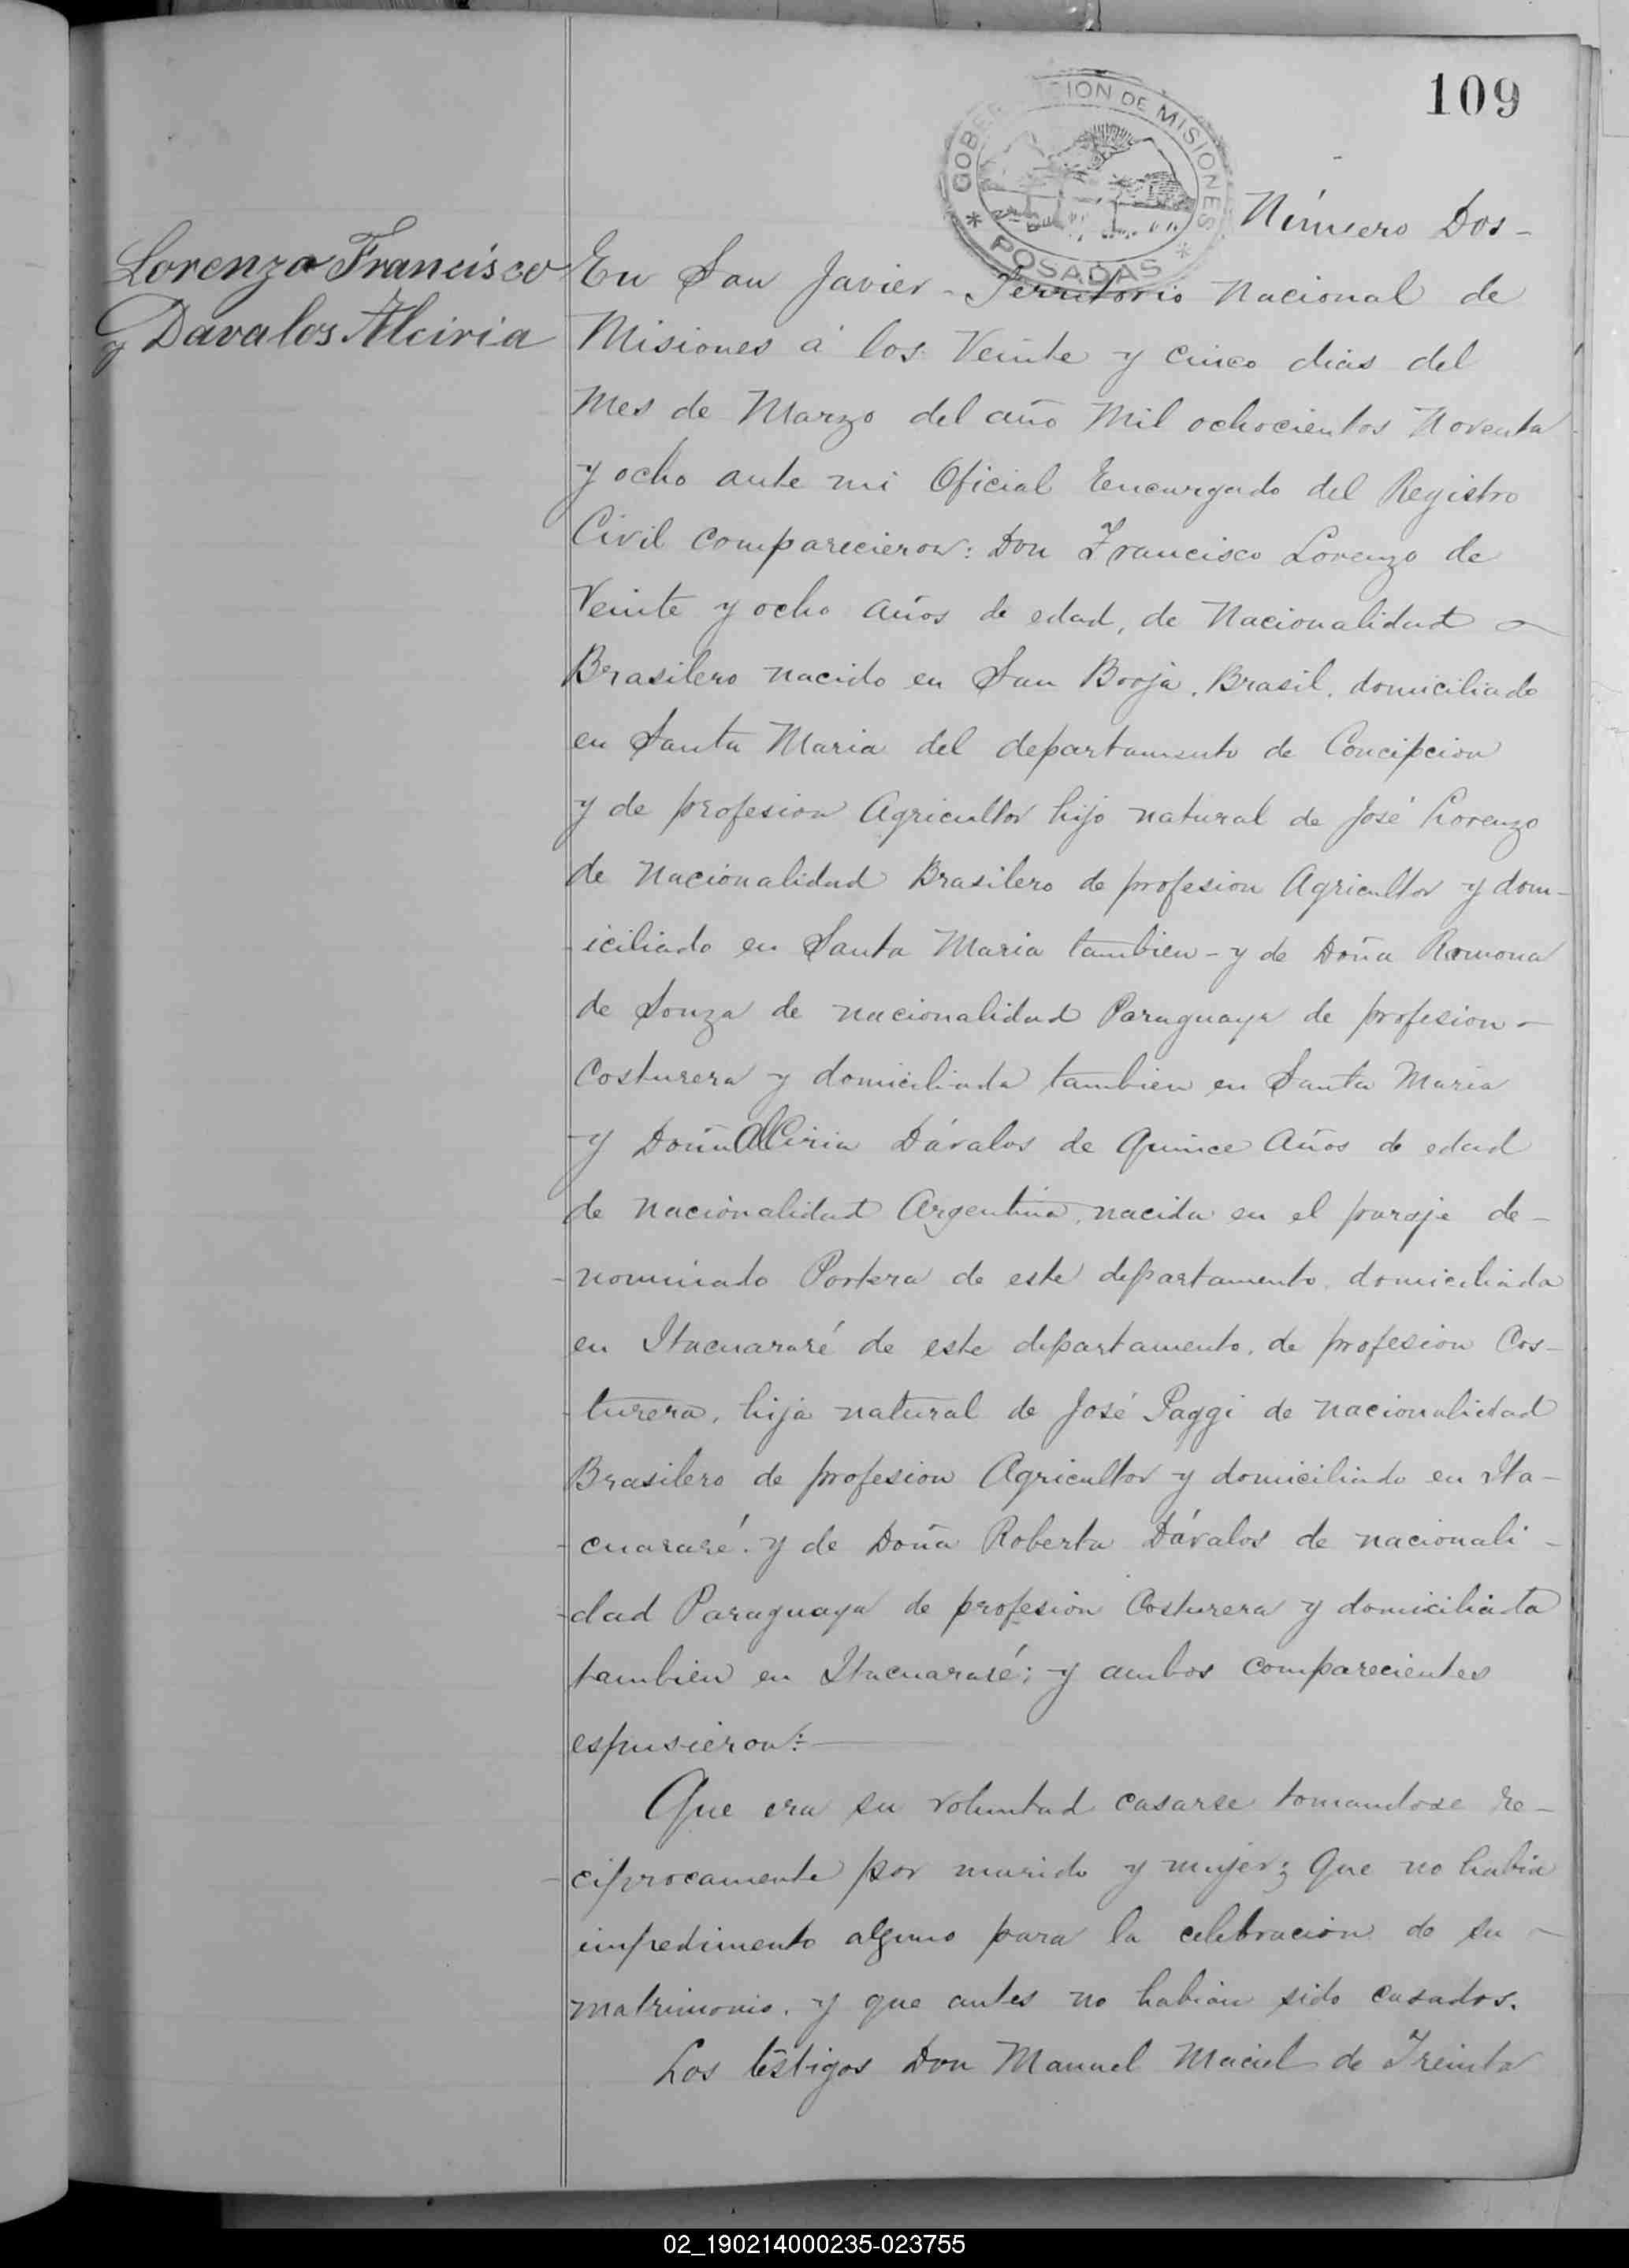 109
GOBER CION DE MISIONES
* POSADAS *
Número Dos-
Lorenzo Francisco
y Davalos Alciria
En San Javier - Territorio Nacional de
Misiones á los Veinte y cinco dias del
Mes de Marzo del año Mil ochocientos Noventa
y ocho ante mi Oficial Encargado del Registro
Civil comparecieron: Don Francisco Lorenzo de
Veinte y ocho años de edad, de Nacionalidad
Brasilero nacido en San Borja, Brasil, domiciliado
en Santa Maria del departamento de Concipcion
y de profesion Agricultor hijo natural de José Lorenzo
de Nacionalidad Brasilero de profesion Agricultor y dom-
iciliado en Santa Maria tambien - y de Doña Romona
de Souza de nacionalidad Paraguaya de profesion -
Costurera y domiciliada tambien en Santa Maria
- y Doña Alciria Dávalos de Quince Años de edad
de nacionalidad Argentina, nacida en el paraje de-
-nominado Portera de este departamento, domiciliada
en Itacuararé de este departamento, de profesion Cos-
-turera, hija natural de José Paggi de nacionalidad
Brasilero de profesion Agricultor y domiciliado en Ita-
-cuararé. y de Doña Roberta Dávalos de nacionali-
-dad Paraguaya de profesion Costurera y domiciliada
tambien en Itacuararé; y ambos comparecientes
espusieron:
Que era su voluntad casarse tomandose re-
-ciprocamente por marido y mujer; Que no habia
impedimento alguno para la celebracion de su
matrimonio, y que antes no habian sido casados.
Los téstigos Don Manuel Maciel de Treinta
02_190214000235-023755